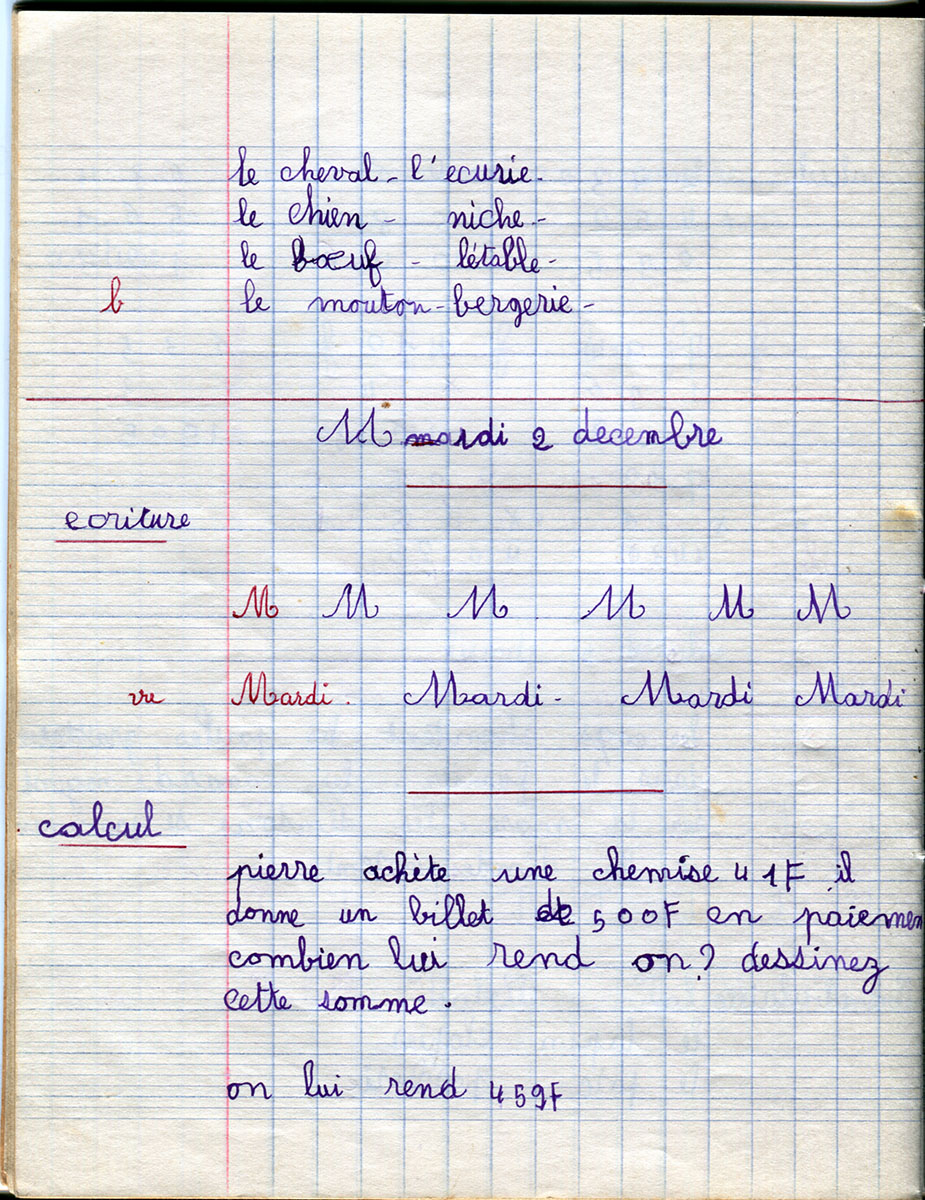 le cheval - l'ecurie -
le chien - niche -
le boeuf - létable -
b le mouton - bergerie -
M mardi 2 decembre
ecriture
M M M M M M
vu Mardi. Mardi - Mardi Mardi
calcul
pierre achète une chemise 41F il
donne un billet de 500F en paiemen
combien lui rend on? dessinez
cette somme.
on lui rend 459F